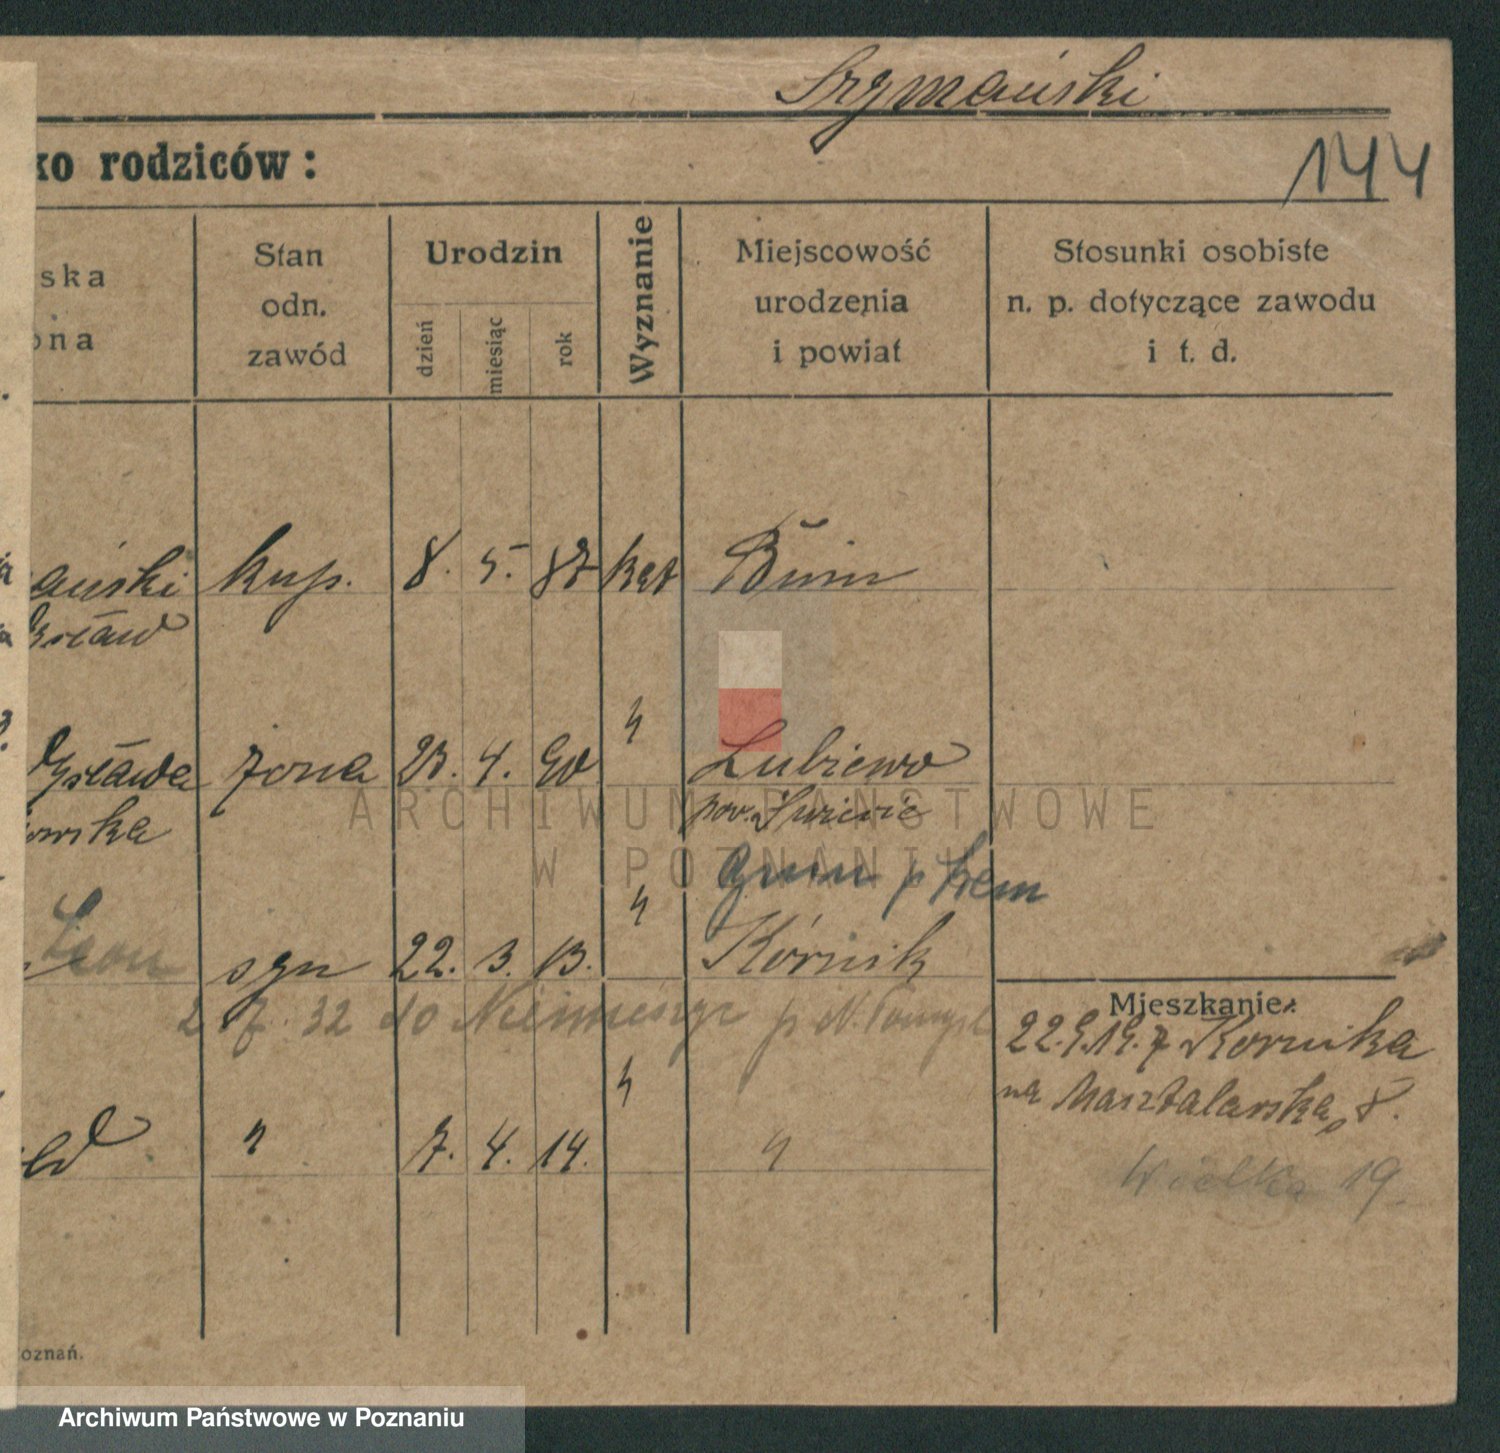 Szymański
144
ko rodziców:
ska
ona
Stan
odn.
zawód
Urodzin
dzień
miesiąc
rok
Wyznanie
Miejscowość
urodzenia
i powiat
Stosunki osobiste
n. p. dotyczące zawodu
i t. d.
ański kup. 8. 5. 87 kat Bnin
ysław
ysława żona 23. 4. 90 " Lubiewo
owska pow. Świecie
Leon syn 22. 3. 13. " Kórnik
2 7. 32 do p N. Tomyśl
" 7. 4. 14. " "
Mieszkanie:
22.9.19. z Kórnika
na Masztalarska, 8.
Wielka 19
oznań.
ARCHIWUM PAŃSTWOWE
W POZNANIU
Archiwum Państwowe w Poznaniu